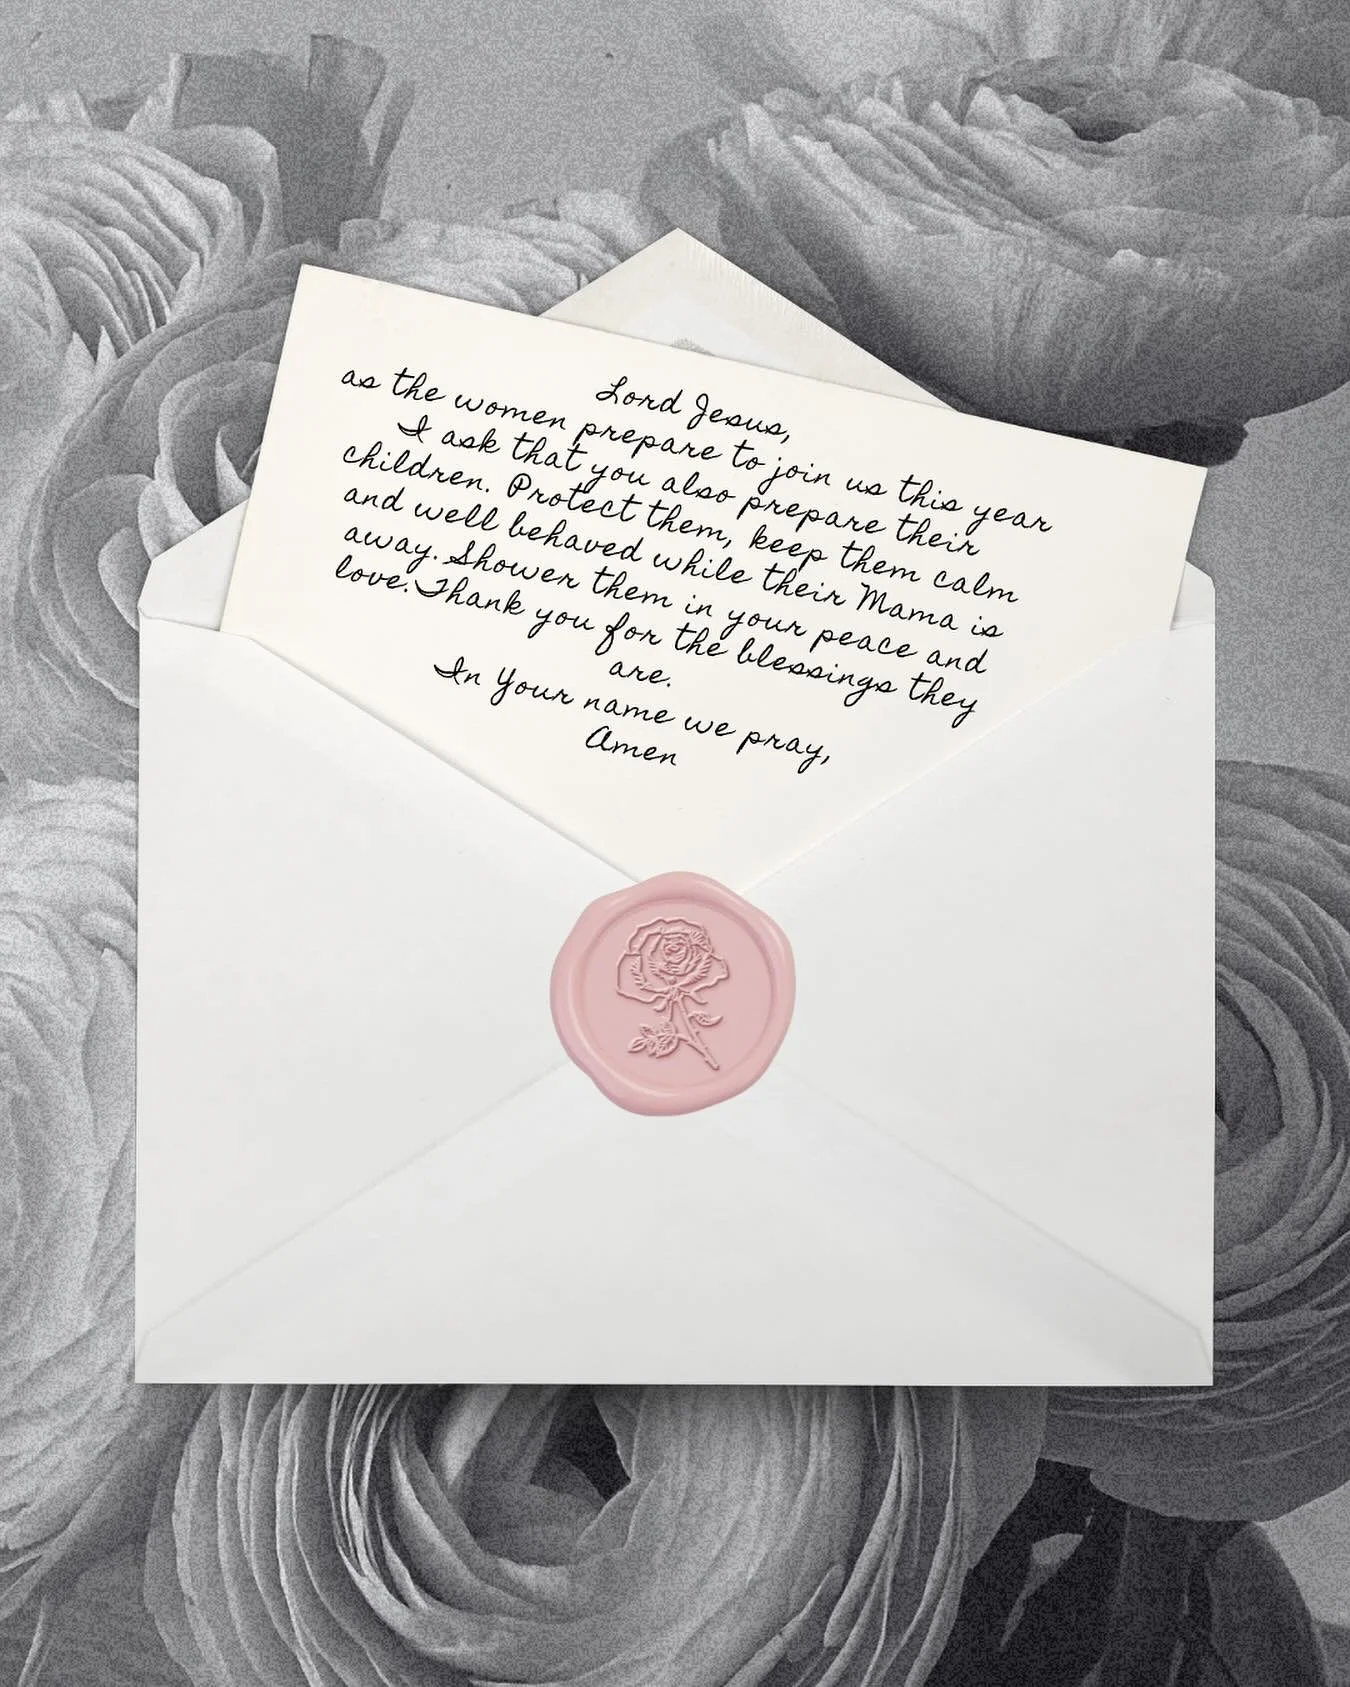 Lord Jesus,
as the women prepare to join us this year
I ask that you also prepare their
children. Protect them, keep them calm
and well behaved while their Mama is
away. Shower them in your peace and
love. Thank you for the blessings they
are.
In Your name we pray,
Amen